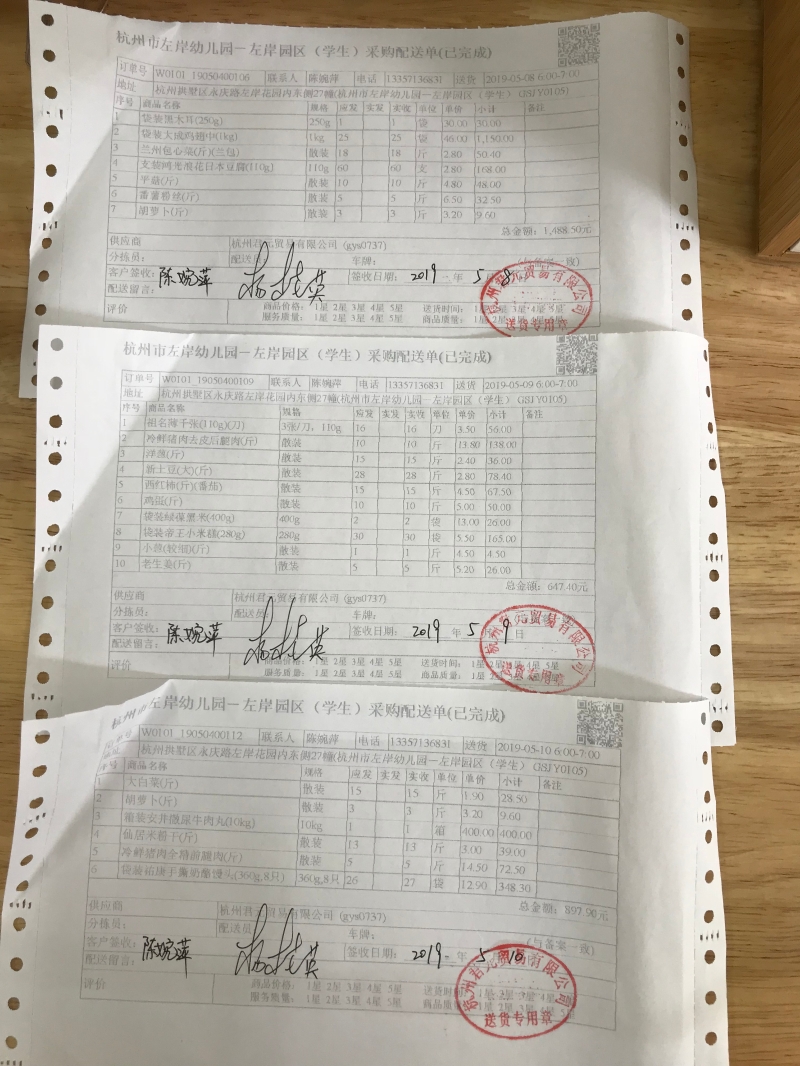 杭州市左岸幼儿园－左岸园区（学生）采购配送单(已完成)
订单号 W0101_19050400106 联系人 陈婉萍 电话 13357136831 送货 2019-05-08 6:00-7:00
地址 杭州拱墅区永庆路左岸花园内东侧27幢(杭州市左岸幼儿园－左岸园区（学生）GSJY0105)
序号 商品名称 规格 应发 实发 实收 单位 单价 小计 备注
1 袋装黑木耳(250g) 250g 1 1 袋 30.00 30.00
2 袋装大成鸡翅中(1kg) 1kg 25 25 袋 46.00 1,150.00
3 兰州包心菜(斤)(兰包) 散装 18 18 斤 2.80 50.40
4 支装鸿光浪花日本豆腐(110g) 110g 60 60 支 2.80 168.00
5 平菇(斤) 散装 10 10 斤 4.80 48.00
6 番薯粉丝(斤) 散装 5 5 斤 6.50 32.50
7 胡萝卜(斤) 散装 3 3 斤 3.20 9.60
总金额: 1,488.50元
供应商 杭州君元贸易有限公司 (gys0737)
分拣员: 配送员 车牌:
客户签收: 陈婉萍 杨桂英 签收日期: 2019 年 5 8
配送留言:
评价 商品价格: 1星 2星 3星 4星 5星 送货时间: 1星 2星 3星 4星 5星
服务质量: 1星 2星 3星 4星 5星 商品质量: 1星 2星
杭州君元贸易有限公司
送货专用章
杭州市左岸幼儿园－左岸园区（学生）采购配送单(已完成)
订单号 W0101_19050400109 联系人 陈婉萍 电话 13357136831 送货 2019-05-09 6:00-7:00
地址 杭州拱墅区永庆路左岸花园内东侧27幢(杭州市左岸幼儿园－左岸园区（学生）GSJY0105)
序号 商品名称 规格 应发 实发 实收 单位 单价 小计 备注
1 祖名薄千张(110g)(刀) 3张/刀, 110g 16 16 刀 3.50 56.00
2 冷鲜猪肉去皮后腿肉(斤) 散装 10 10 斤 13.80 138.00
3 洋葱(斤) 散装 15 15 斤 2.40 36.00
4 新土豆(大)(斤) 散装 28 28 斤 2.80 78.40
5 西红柿(斤)(番茄) 散装 15 15 斤 4.50 67.50
6 鸡蛋(斤) 散装 10 10 斤 5.00 50.00
7 袋装绿葆黑米(400g) 400g 2 2 袋 13.00 26.00
8 袋装帝王小米糕(280g) 280g 30 30 袋 5.50 165.00
9 小葱(较细)(斤) 散装 1 1 斤 4.50 4.50
10 老生姜(斤) 散装 5 5 斤 5.20 26.00
总金额: 647.40元
供应商 杭州君元贸易有限公司 (gys0737)
分拣员: 配送员 车牌:
客户签收: 陈婉萍 杨桂英 签收日期: 2019 年 5 9 日
配送留言:
评价 商品价格: 1星 2星 3星 4星 5星 送货时间: 1星 2星 3星 4星 5星
服务质量: 1星 2星 3星 4星 5星 商品质量: 1星
杭州君元贸易有限公司
送货专用章
杭州市左岸幼儿园－左岸园区（学生）采购配送单(已完成)
订单号 W0101_19050400112 联系人 陈婉萍 电话 13357136831 送货 2019-05-10 6:00-7:00
地址 杭州拱墅区永庆路左岸花园内东侧27幢(杭州市左岸幼儿园－左岸园区（学生）GSJY0105)
序号 商品名称 规格 应发 实发 实收 单位 单价 小计 备注
1 大白菜(斤) 散装 15 15 斤 1.90 28.50
2 胡萝卜(斤) 散装 3 3 斤 3.20 9.60
3 箱装安井隐尿牛肉丸(10kg) 10kg 1 1 箱 400.00 400.00
4 仙居米粉干(斤) 散装 13 13 斤 3.00 39.00
5 冷鲜猪肉全精前腿肉(斤) 散装 5 5 斤 14.50 72.50
6 袋装祐康手撕奶酪馒头(360g,8只) 360g,8只 26 27 袋 12.90 348.30
总金额: 897.90元
供应商 杭州君元贸易有限公司 (gys0737)
分拣员: 配送员 车牌: (与备案一致)
客户签收: 陈婉萍 杨桂英 签收日期: 2019 年 5 10
配送留言:
评价 商品价格: 1星 2星 3星 4星 5星 送货时间: 1星 2星 3星 4星 5星
服务质量: 1星 2星 3星 4星 5星 商品质量: 1星 2星 3星 4星 5星
杭州君元贸易有限公司
送货专用章